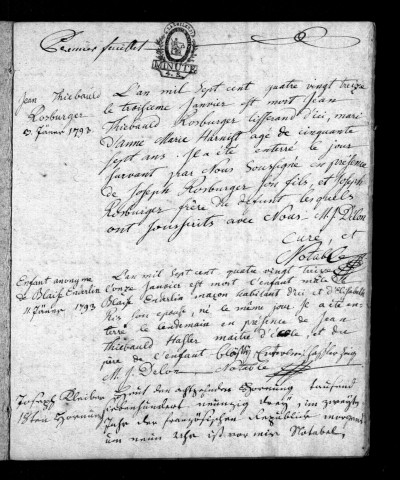 Premier feuillet
MINUTE
Jean Thiebaud
Rosburger
3 Janvr 1793
L'an mil Sept cent quatre vingt treize
le troisieme Janvier est mort Jean
Thiebauld Rosburger tisserand d'ici, mari
d'anne Marie Harnist agé de cinquante
sept ans. Il a été enterré le jour
suivant par Nous Soussigné en presence
de Joseph Rosburger son fils, et Joseph
Rosburger frère du defunt lesquels
ont soussignés avec Nous M. J. Delon
Curé, et
Notable
Enfant anonyme
de Blaise Enderlin
11 Janvr 1793
L'an mil sept cent quatre vingt treize
l'onze Janvier est mort l'enfant mâle de
Blaise Enderlin maçon habitant d'ici et d'Elisabeth
son epouse, né le même jour. Il a été en
terré le lendemain en présence de Jean
Thiebauld maitre d'école, et du
père de l'enfant
M. J. Delon Notable
Joseph Kleiber
18ten Hornung
Heut den achtzehnden Hornung tausend
siebenhundert neunzig drey, im zweyten
Jahr der französischen Republick morgens
um neun Uhr ist vor mir Notabel,